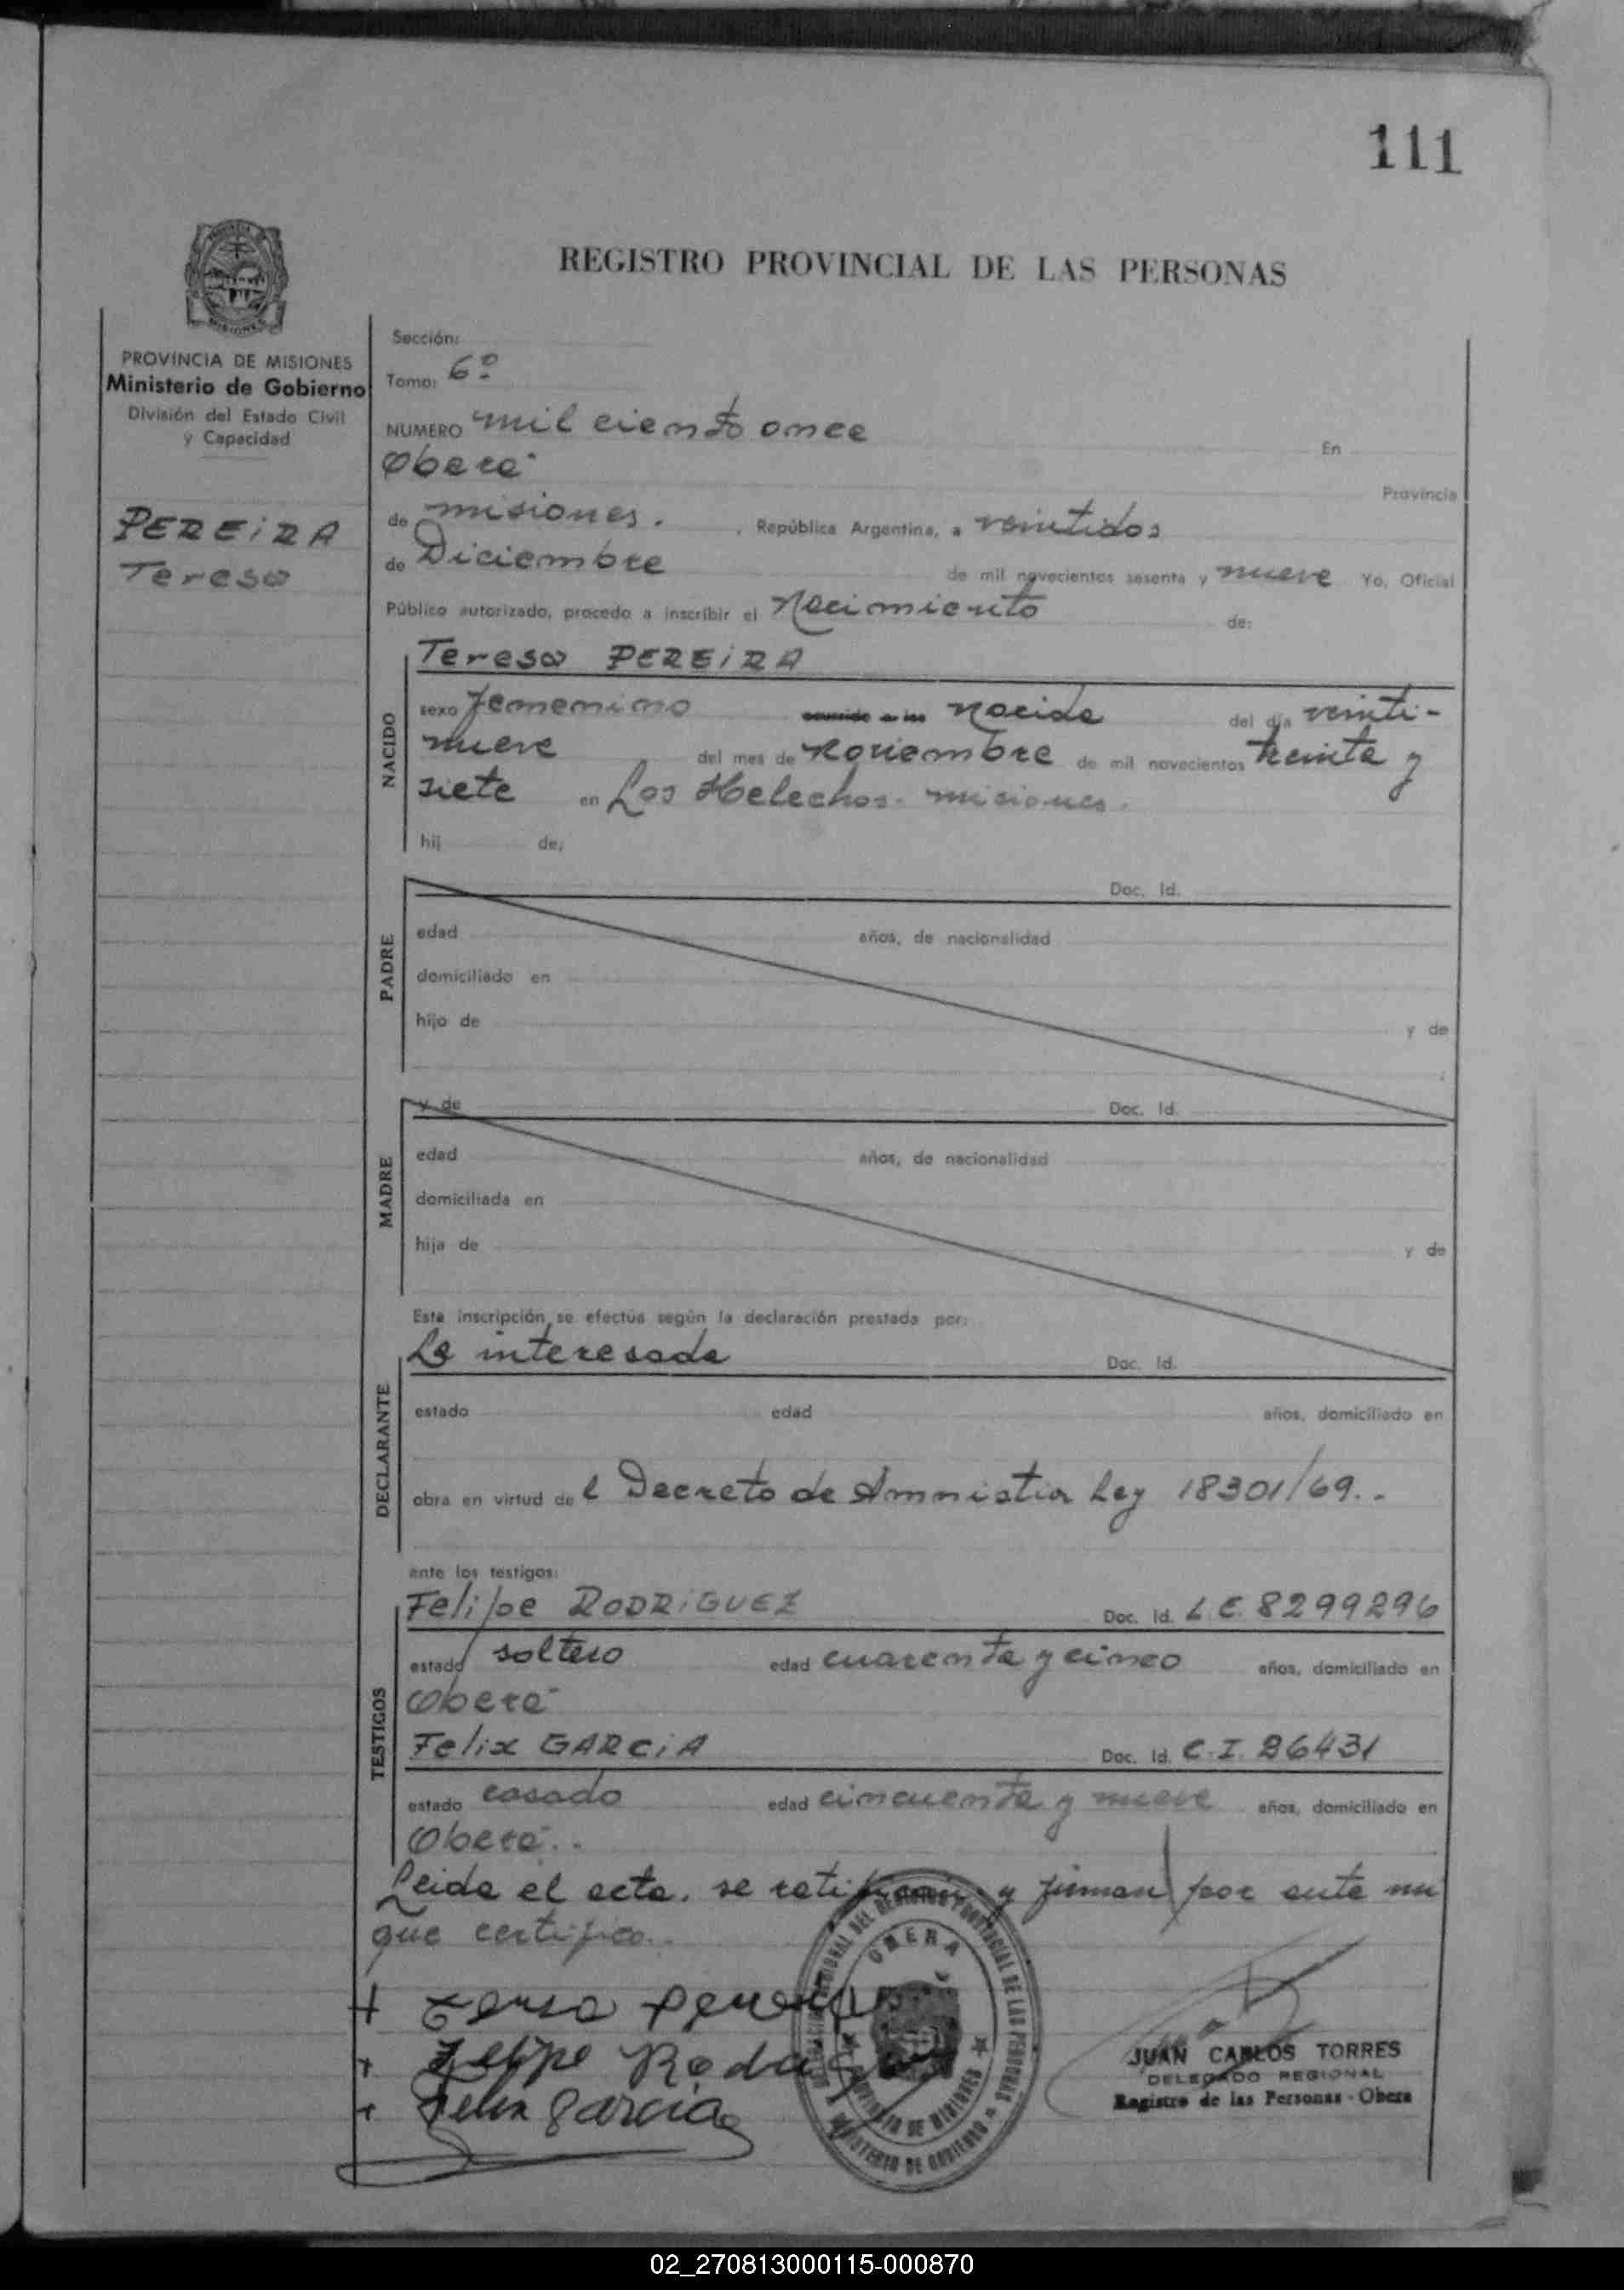 111
REGISTRO PROVINCIAL DE LAS PERSONAS
MISIONES
PROVINCIA DE MISIONES
Ministerio de Gobierno
División del Estado Civil
y Capacidad
PEREiRA
Teresa
Sección:
Tomo: 6º
NUMERO mil ciento once En
Oberá
Provincia
de misiones. , República Argentina, a veintidos
de Diciembre de mil novecientos sesenta y nueve Yo, Oficial
Público autorizado, procedo a inscribir el Nacimiento de:
NACIDO
Teresa PEREiRA
sexo femenino nacida del día veinti-
nueve del mes de Noviembre de mil novecientos treinta y
siete en Los Helechos. misiones.
hij de;
PADRE
Doc. Id.
edad años, de nacionalidad
domiciliado en
hijo de y de
MADRE
y de Doc. Id.
edad años, de nacionalidad
domiciliada en
hija de y de
Esta inscripción se efectúa según la declaración prestada por:
DECLARANTE
La interesada Doc. Id.
estado edad años, domiciliado en
obra en virtud de l Decreto de Amnistia Ley 18301/69..
ante los testigos:
TESTIGOS
Felipe RODRiGUEZ Doc. Id. L.E. 8299296
estado soltero edad cuarenta y cinco años, domiciliado en
Oberá
Felix GARCiA Doc. Id. C.I. 86431
estado casado edad cincuenta y nueve años, domiciliado en
Oberá..
Leida el acta. se ratifican y firman por ante mi
que certifico..
+ Teresa Pereira
+ Felipe Rodriguez
+ Felix Garcia
OBERÁ
PROVINCIA DE MISIONES
MINISTERIO DE GOBIERNO
JUAN CARLOS TORRES
DELEGADO REGIONAL
Registro de las Personas - Obera
02_270813000115-000870